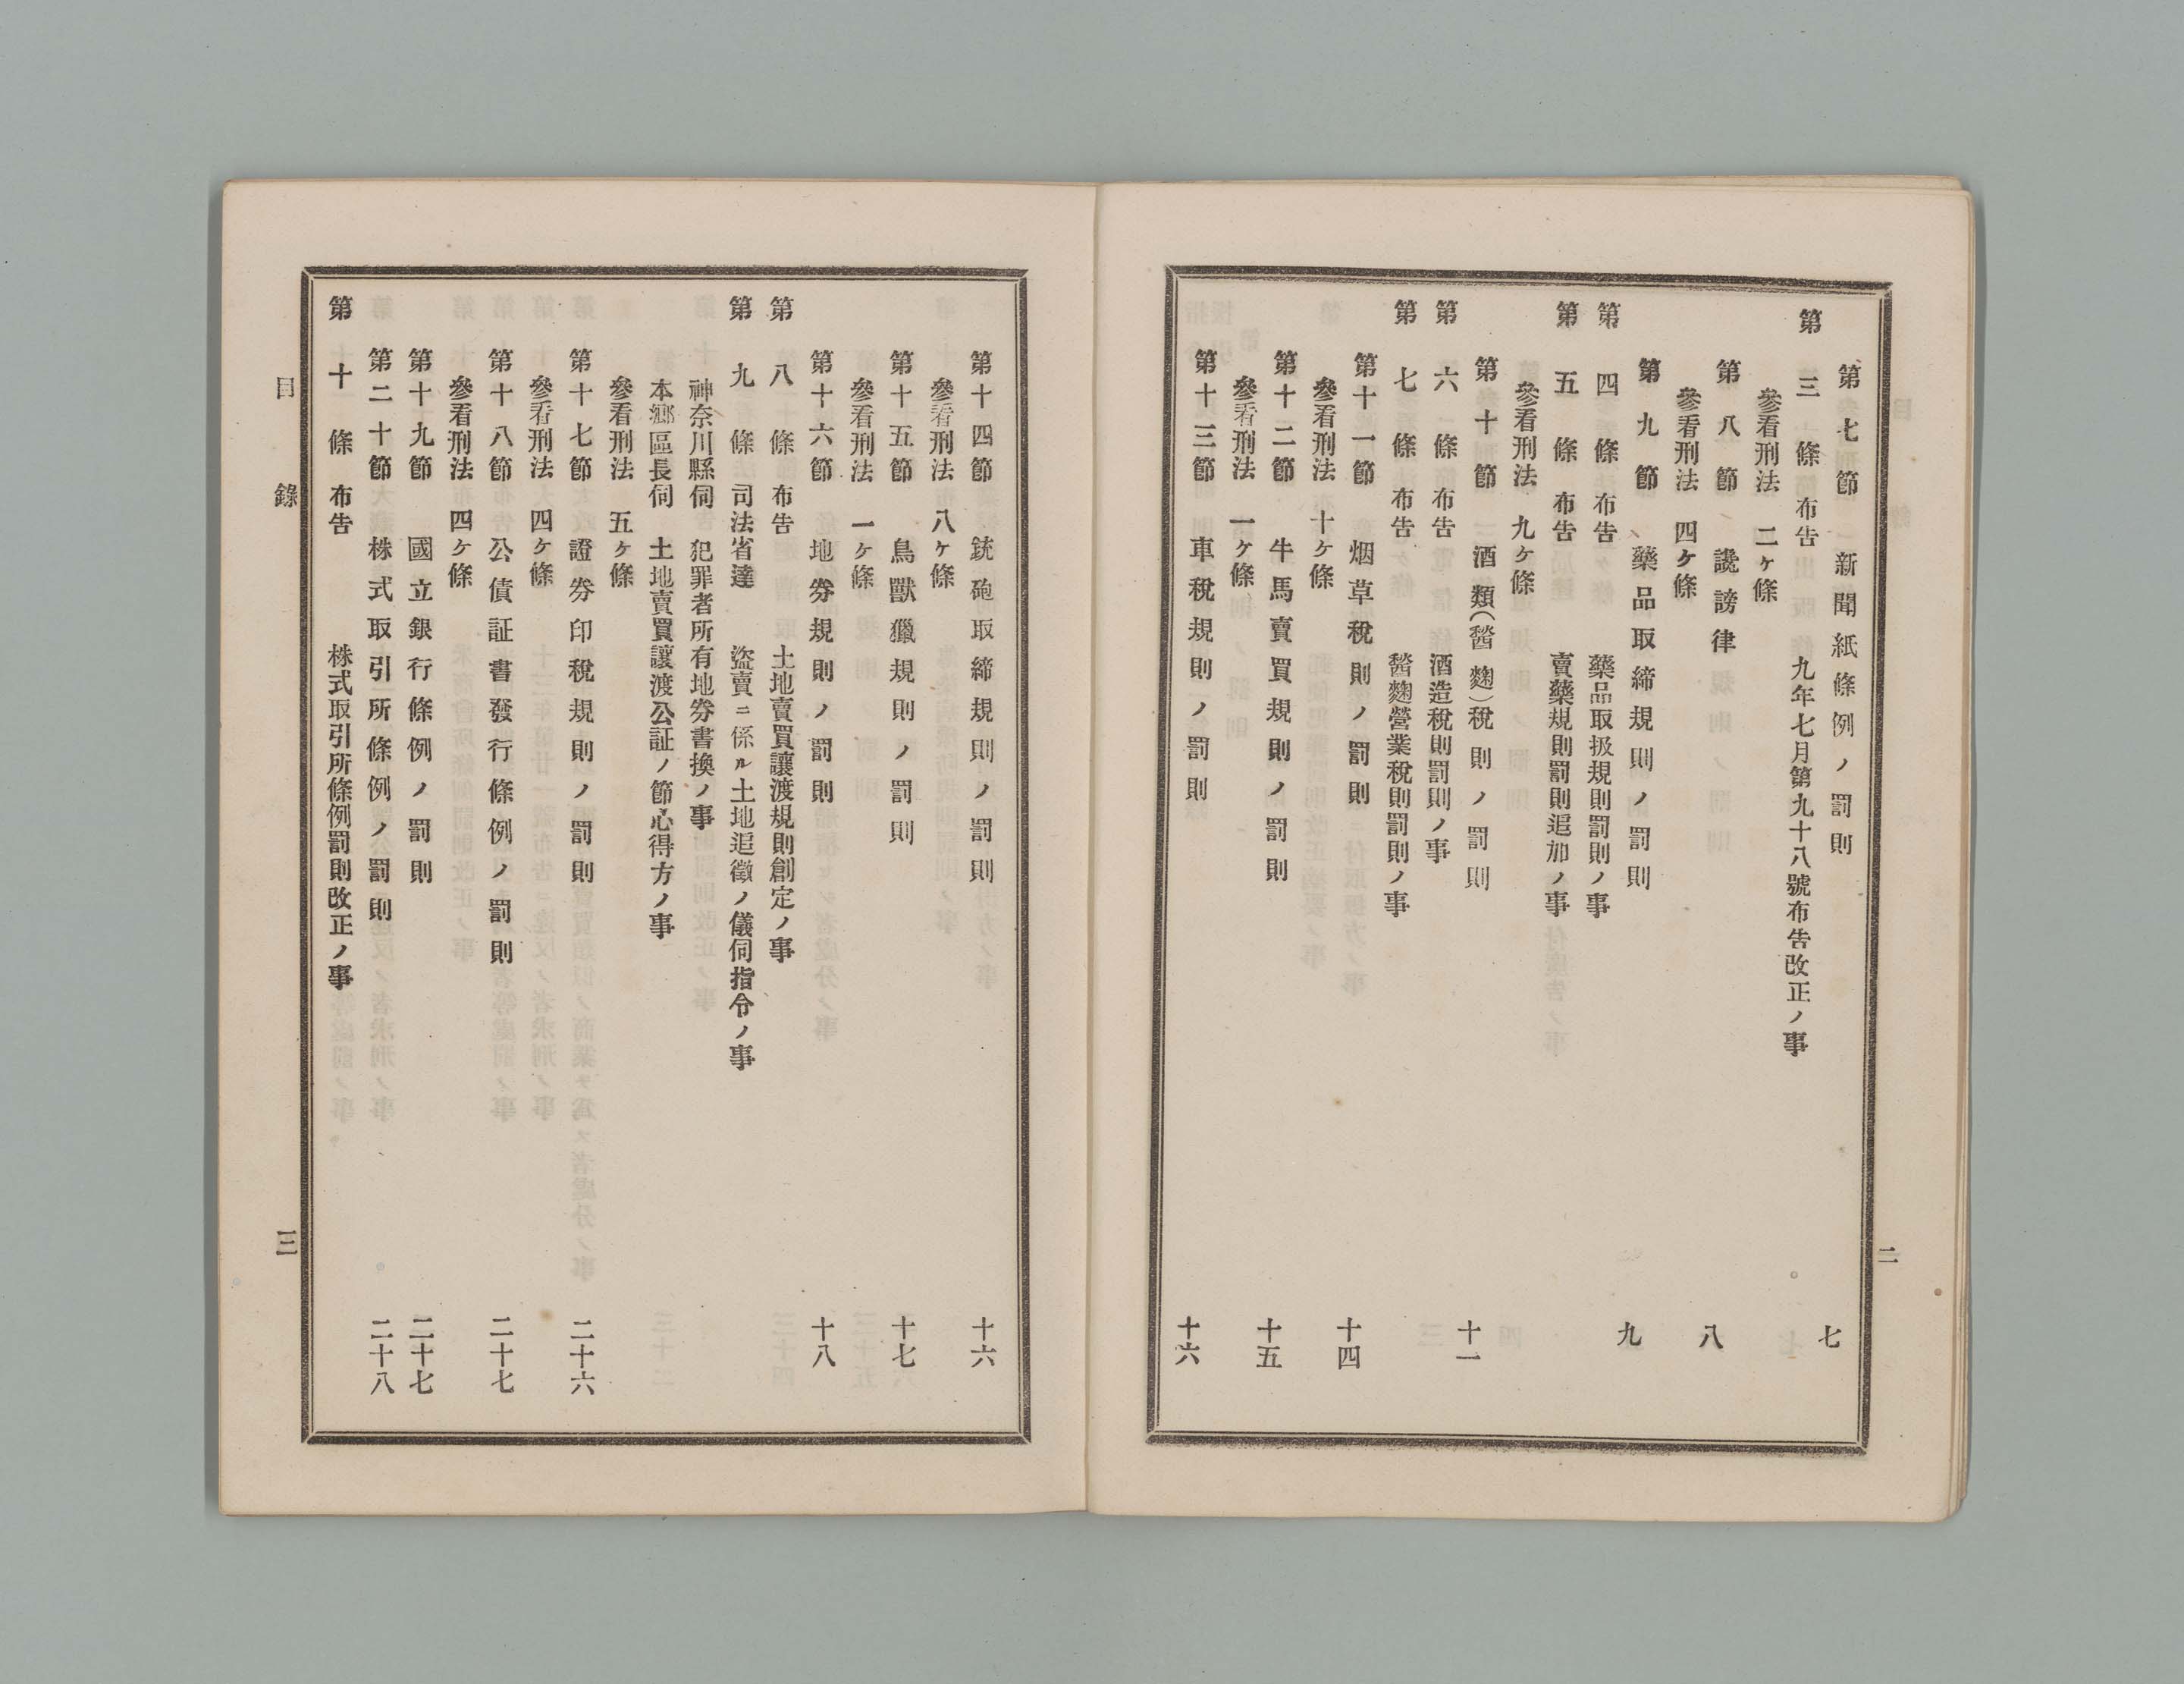 二
第七節 新聞紙條例ノ罰則 七
第三條 布告 九年七月第九十八號布告改正ノ事
參看刑法 二ヶ條
第八節 讒謗律 八
參看刑法 四ヶ條
第九節 藥品取締規則ノ罰則 九
第四條 布告 藥品取扱規則罰則ノ事
第五條 布告 賣藥規則罰則追加ノ事
參看刑法 九ヶ條
第十節 酒類(醫麴)稅則ノ罰則 十一
第六條 布告 酒造稅則罰則ノ事
第七條 布告 醫麴營業稅則罰則ノ事
第十一節 烟草稅則ノ罰則 十四
參看刑法 十ヶ條
第十二節 牛馬賣買規則ノ罰則 十五
參看刑法 一ヶ條
第十三節 車稅規則ノ罰則 十六
第十四節 銃砲取締規則ノ罰則 十六
參看刑法 八ヶ條
第十五節 鳥獸獵規則ノ罰則 十七
參看刑法 一ヶ條
第十六節 地劵規則ノ罰則 十八
第八條 布告 土地賣買讓渡規則創定ノ事
第九條 司法省達 盜賣ニ係ル土地追徵ノ儀伺指令ノ事
神奈川縣伺 犯罪者所有地劵書換ノ事
本鄕區長伺 土地賣買讓渡公証ノ節心得方ノ事
參看刑法 五ヶ條
第十七節 證劵印稅規則ノ罰則 二十六
參看刑法 四ヶ條
第十八節 公債証書發行條例ノ罰則 二十七
參看刑法 四ヶ條
第十九節 國立銀行條例ノ罰則 二十七
第二十節 株式取引所條例ノ罰則 二十八
第十條 布告 株式取引所條例罰則改正ノ事
目錄 三